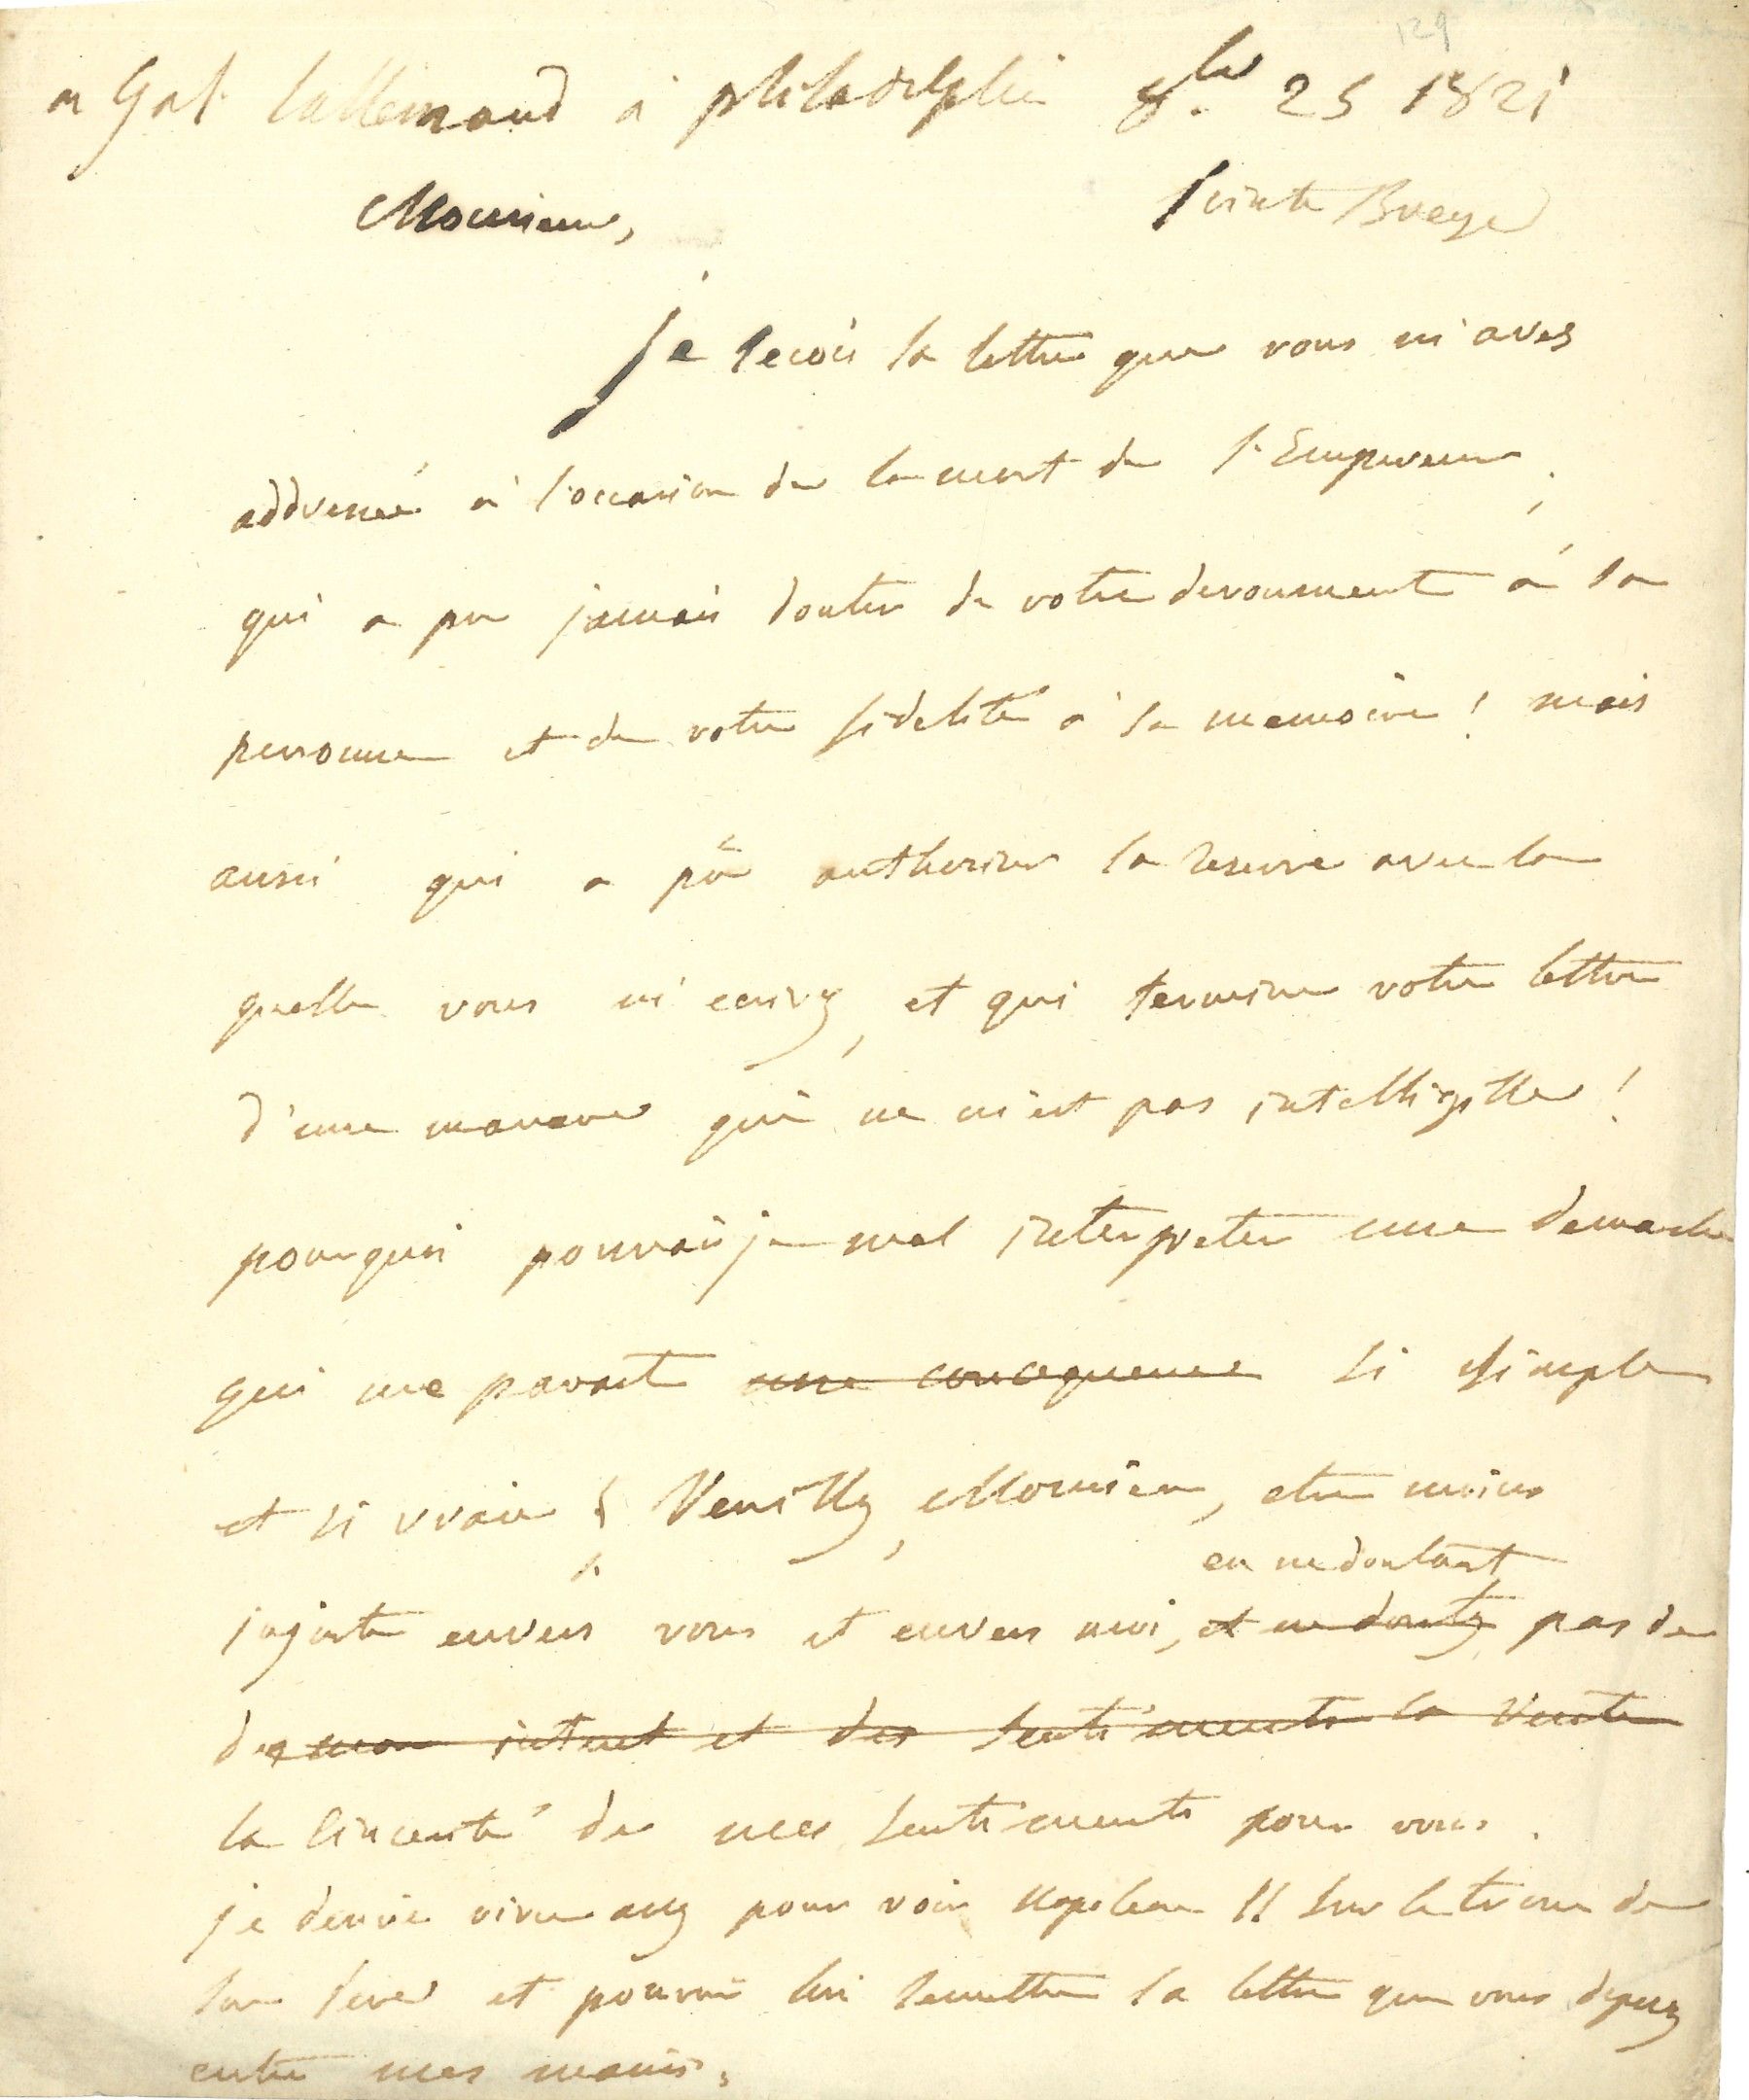 129
a Gal. Lallemand à philadelphie 8bre 25 1821
Pointe Breeze
Monsieur,
Je recois la lettre que vous m'aves
addressée à l'occasion de la mort de l'Empereur;
qui a pu jamais douter de votre devoument à sa
personne et de votre fidelité à sa memoire! mais
aussi qui a pû authoriser la reserve avec la
quelle vous m'ecrivez, et qui termine votre lettre
d'une maniere qui ne m'est pas intelligible!
pourquoi pourrais je mal interpreter une demarche
qui me parait une consequence si simple
et si vraie! Veuillez, Monsieur, etre moins
en ne doutant
injuste envers vous et envers moi, et ne doutez pas de
de mon interet et des sentiments la verité
la sincerité de mes sentiments pour vous.
je desire vivre assez pour voir Napoleon II sur le trone de
son pere et pouvoir lui remettre la lettre que vous deposez
entre mes mains.